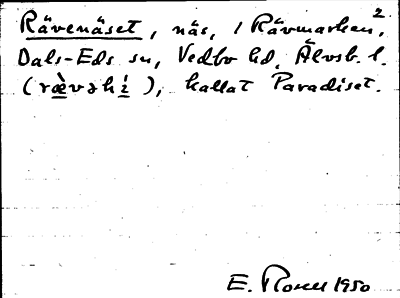 2
Rävenäset, näs, i Rävmarken,
Dals-Eds sn, Vedbo hd, Älvsb. l.
( ), kallat Paradiset.
E. 1950